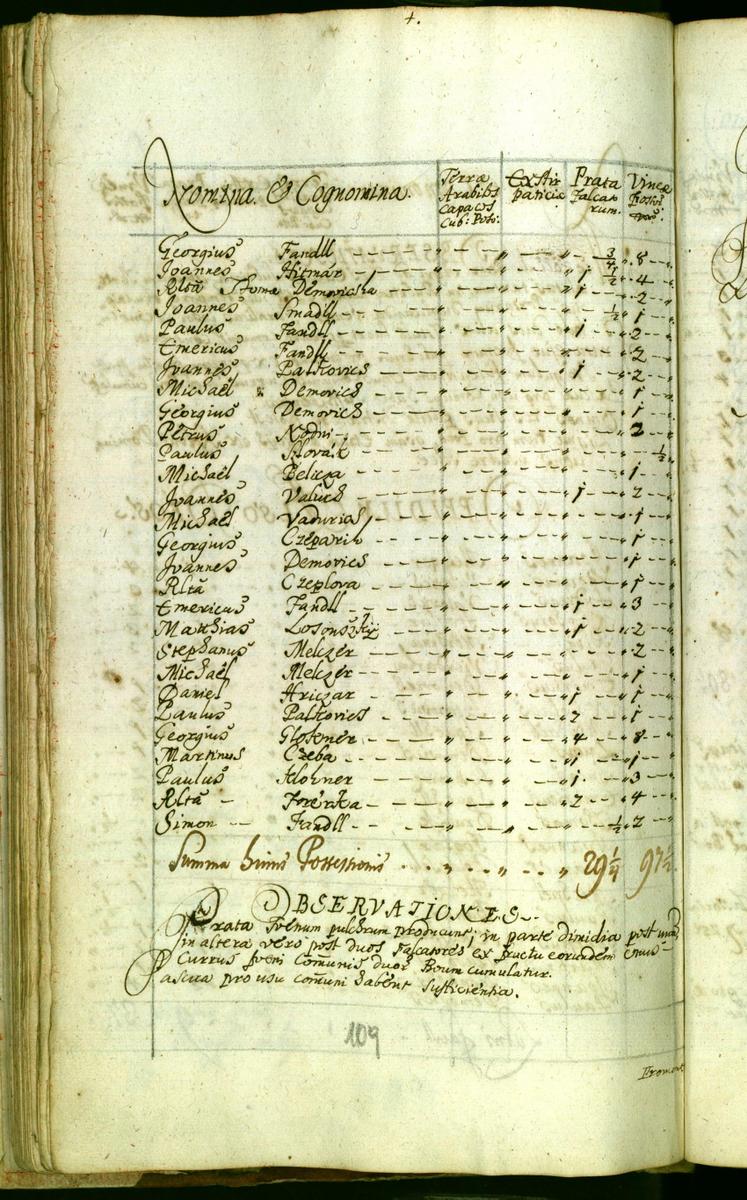 4.
Nomina & Cognomina. Terræ Arabiles Capaces Cub: Pos: Extir paticiæ Prata Falcato rum. Vineæ
Georgius Fandll 3/4 8
Joannes Hitmár 1 1/2 4
Rltã Thomæ Demovicska 1 2
Joannes Smadll 1/2 1
Paulus Fandll 1 2
Emericus Fandll 2
Joannes Palkovics 1 2
Michaël Demovics 1
Georgius Demovics 1
Petrus Nodni 2
Paulus Slovák 1/2
Michaël Belicza 1
Joannes Valuch 1 2
Michaël 1
Georgius Czeparik 1
Joannes Demovics 1
Rltã Czeplova 1
Emericus Fandll 1 3
Matthias Losonszkÿ 1 2
Stephanus Melczer 2
Michaël Melczer 1
Daniel Hriczar 1 1
Paulus Palkovics 2 1
Georgius Glosner 4 8
Martinus Czeba 1 1
Paulus Klohner 1 3
Rltã 2 4
Simon Fandll 1/2 2
Summa huius Possessionis 29 1/4 97 1/2
OBSERVATIONES
Prata Fœnum pulchrum producunt; in parte dimidia post
in altera vero post duos Falcatores, ex fructu eorundem
Currus fœni Comũnis duor Boum cumulatur.
Pascua pro usu comũni habent sufficientia.
109